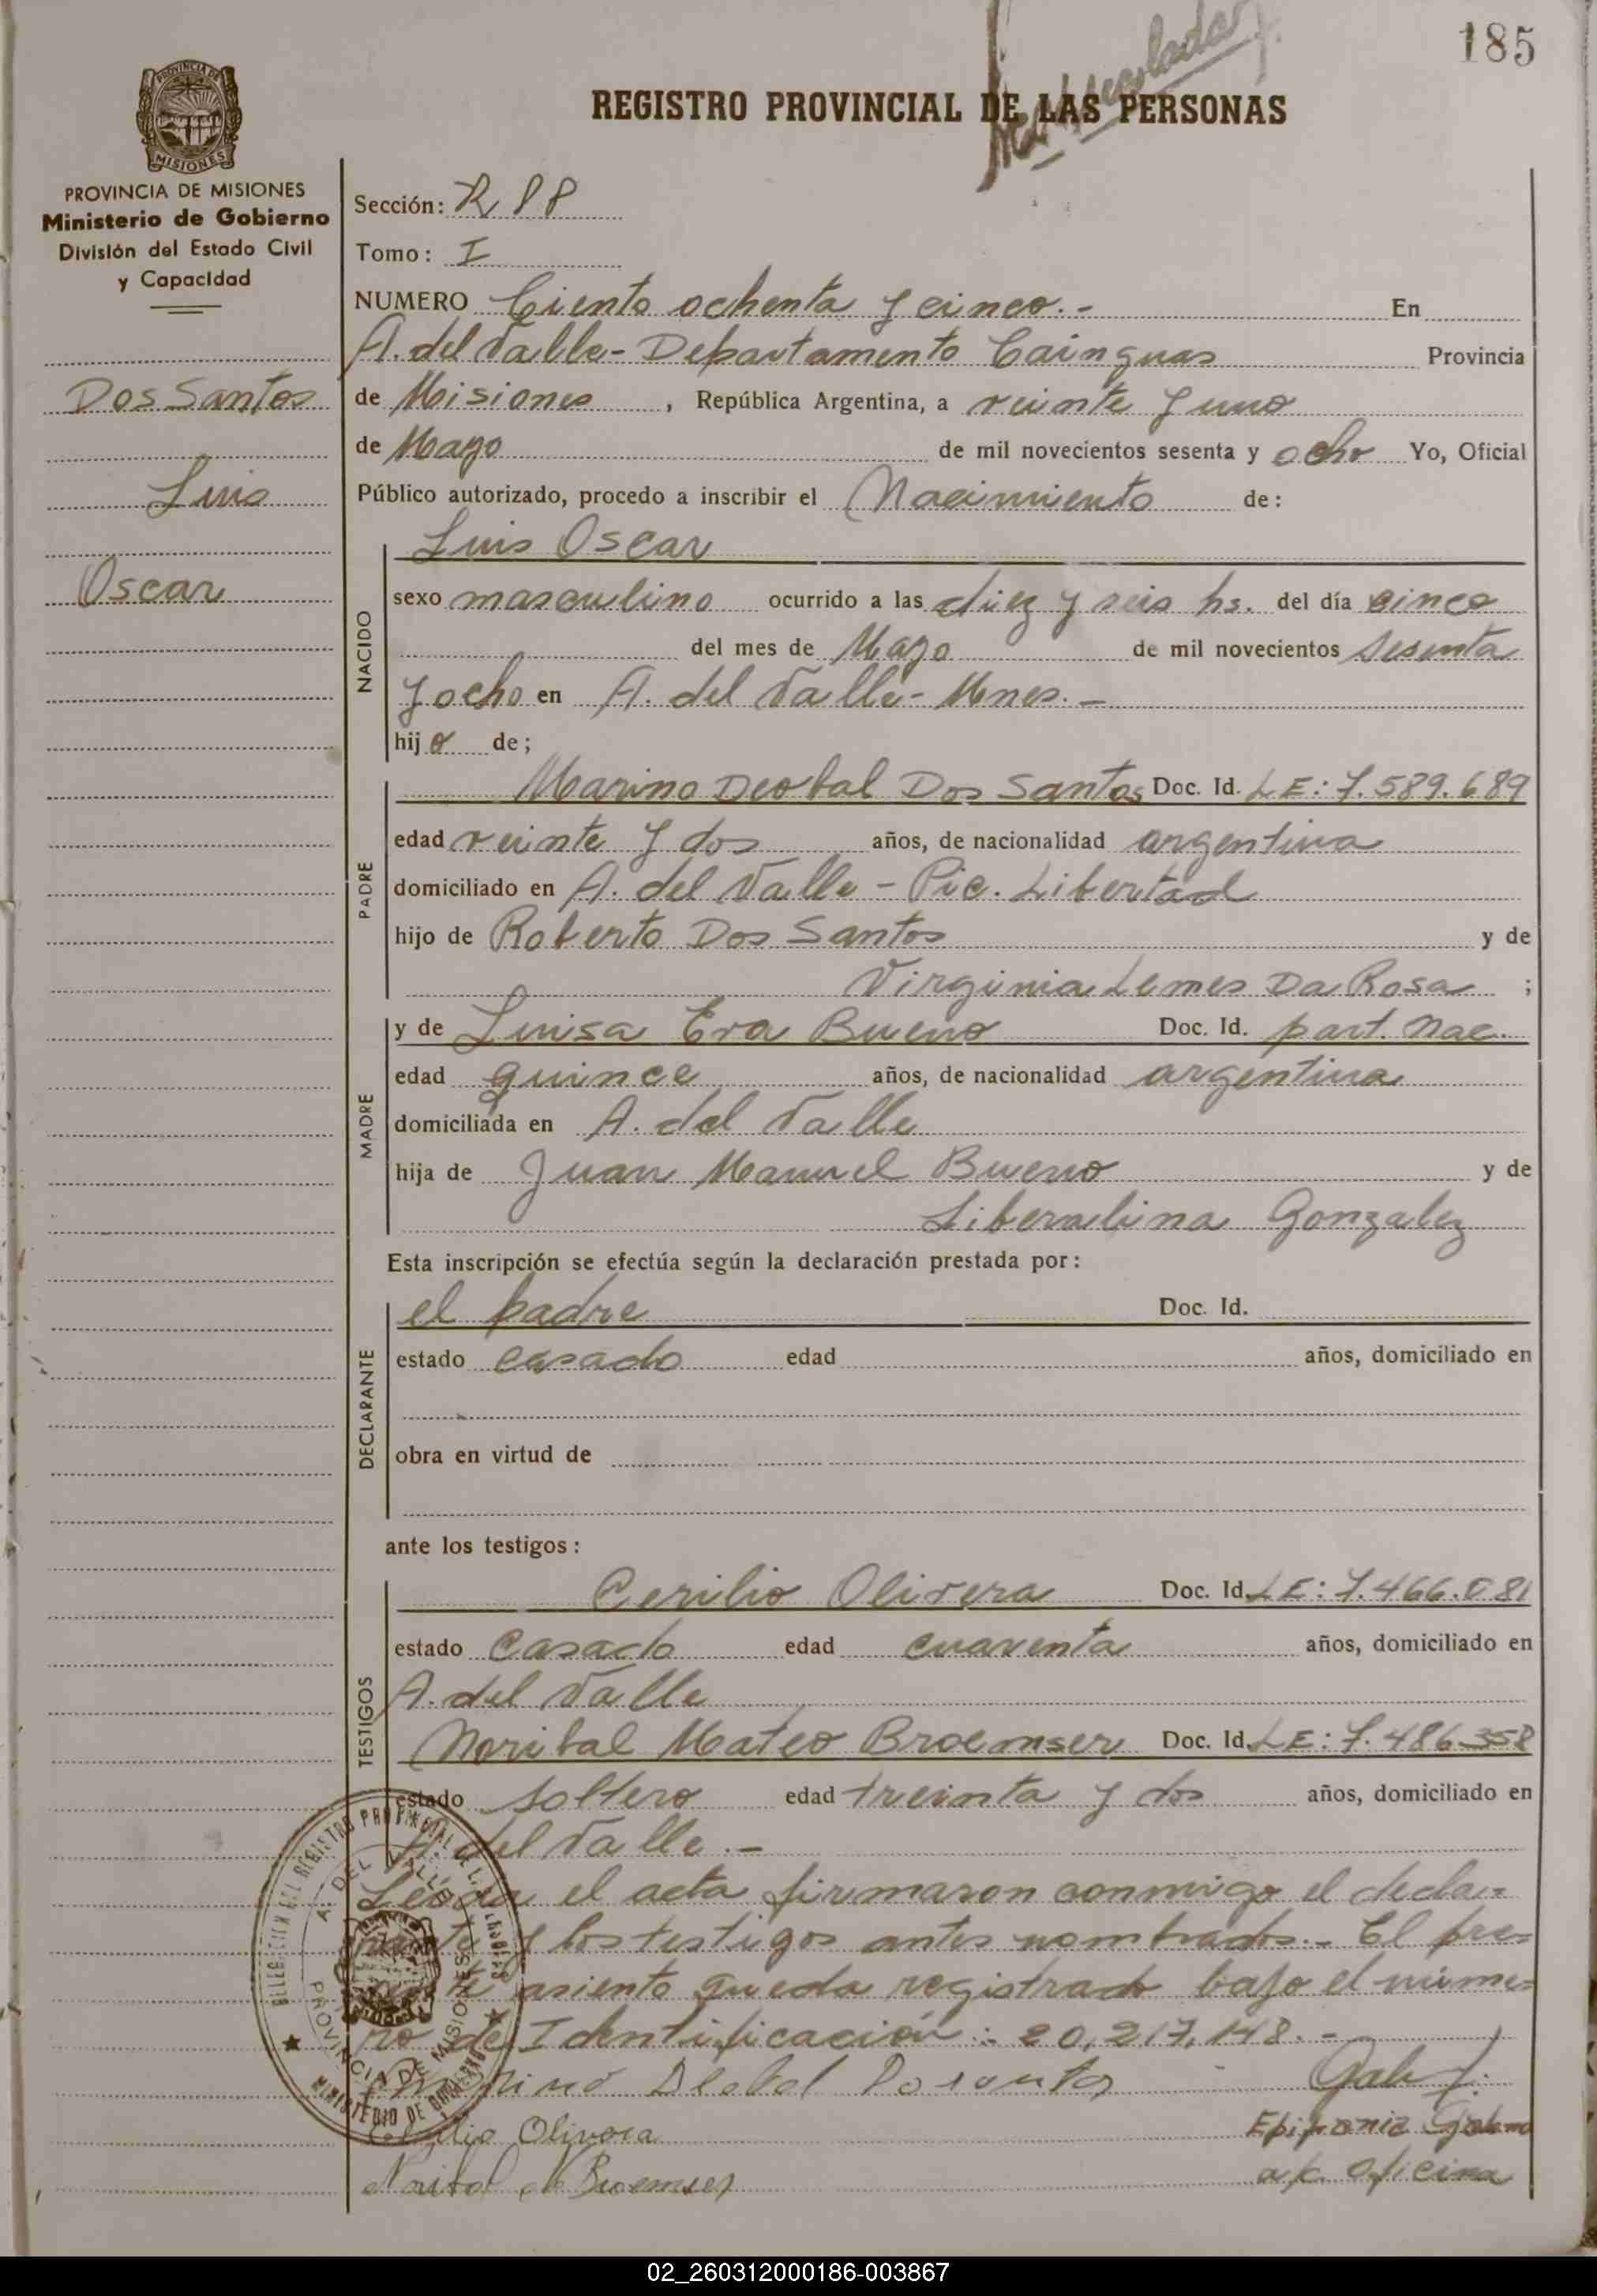 185
REGISTRO PROVINCIAL DE LAS PERSONAS
PROVINCIA DE
MISIONES
PROVINCIA DE MISIONES
Ministerio de Gobierno
División del Estado Civil
y Capacidad
Dos Santos
Luis
Oscar
Sección: R 88
Tomo: I
NUMERO Ciento ochenta y cinco.- En
A. del Valle - Departamento Cainguas Provincia
de Misiones, República Argentina, a veinte y uno
de Mayo de mil novecientos sesenta y ocho Yo, Oficial
Público autorizado, procedo a inscribir el Nacimiento de:
Luis Oscar
NACIDO
sexo masculino ocurrido a las diez y seis hs. del día cinco
del mes de Mayo de mil novecientos sesenta
y ocho en A. del Valle - Mnes. -
hijo de;
PADRE
Marino Deobal Dos Santos Doc. Id. LE: 7.589.689
edad veinte y dos años, de nacionalidad argentina
domiciliado en A. del Valle - Pic. Libertad
hijo de Roberto Dos Santos y de
Virginia Lemes Da Rosa ;
MADRE
y de Luisa Eva Bueno Doc. Id. part. Nac.
edad quince años, de nacionalidad argentina
domiciliada en A. del Valle
hija de Juan Manuel Bueno y de
Liberalina Gonzalez
Esta inscripción se efectúa según la declaración prestada por:
DECLARANTE
el padre Doc. Id.
estado casado edad años, domiciliado en
obra en virtud de
ante los testigos:
TESTIGOS
Cerilio Olivera Doc. Id. LE: 7.466.081
estado Casado edad cuarenta años, domiciliado en
A. del Valle
Noribal Mateo Broemser Doc. Id. LE: 7.486.358
estado soltero edad treinta y dos años, domiciliado en
A. del Valle.-
Leída el acta firmaron conmigo el decla-
rante y los testigos antes nombrados.- El pre-
sente asiento queda registrado bajo el núme-
ro de Identificación: 20,217,148.-
Marino Deobal Dosantos
Olivera
Broemser
Epifanio
a/c. Oficina
A. DEL VALLE
PROVINCIA DE MISIONES
MINISTERIO DE GOBIERNO
02_260312000186-003867